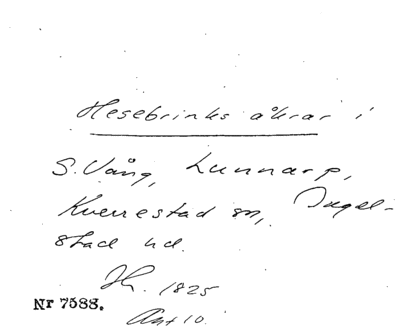 Hesebrinks åkrar i
S. Vång, Lunnarp,
Kverrestad sn, Ingel-
stad hd.
1825
Nr 7588.
Ant 10.